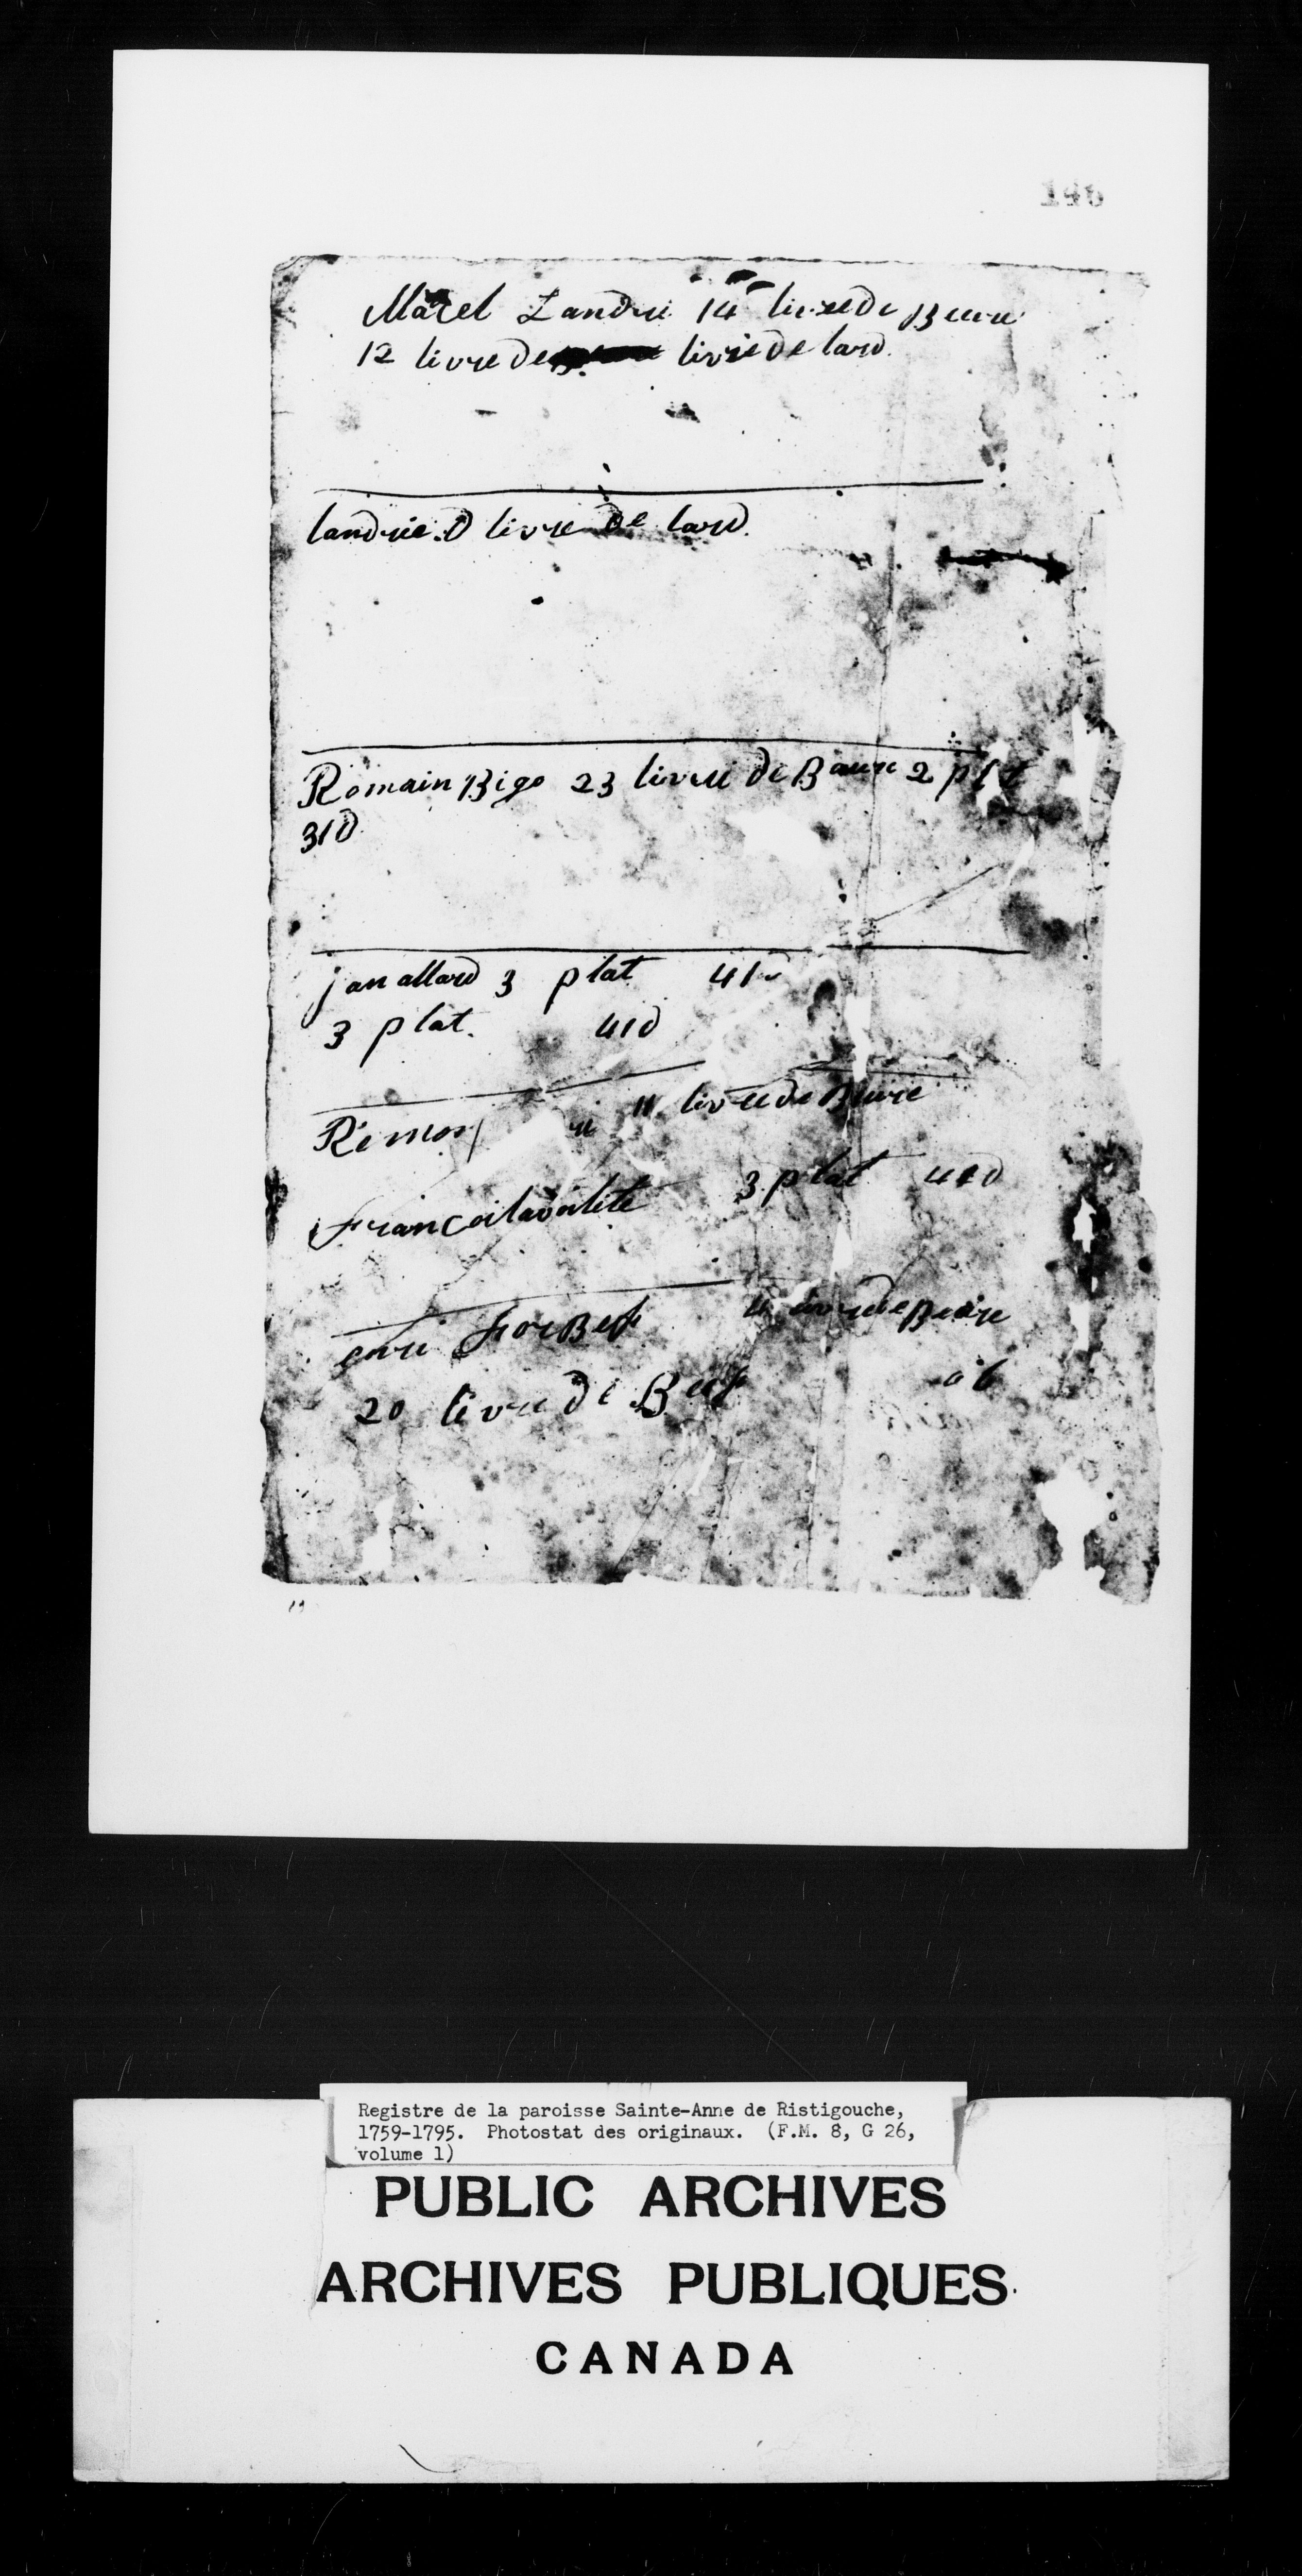 146
Marel Landri 14 livre de Beure
12 livre de livre de lard
landrie D livre de lard
Romain Bigo 23 livre de Baure 2 plat
31d
jan allard 3 plat 41d
3 plat. 41d
Remon 11 livre de Beure
Francoilaviolete 3 plat 41d
enri Forbest livre de Beure
20 livre de Beef
Registre de la paroisse Sainte-Anne de Ristigouche,
1759-1795. Photostat des originaux. (F.M. 8, G 26,
volume 1)
PUBLIC ARCHIVES
ARCHIVES PUBLIQUES
CANADA